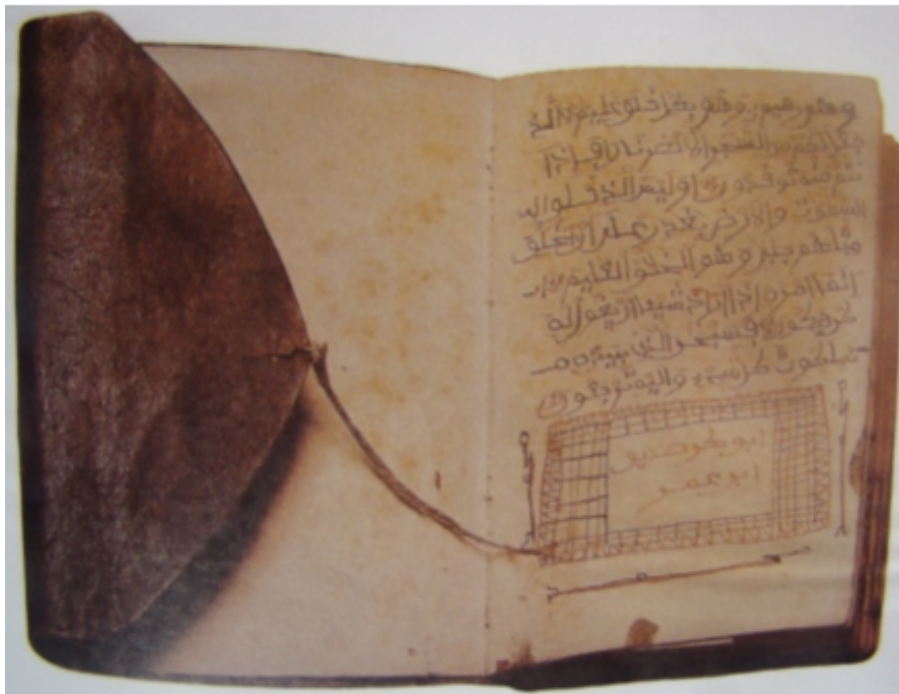 وهو بكل خلق عليم الذ
جعل لكم من الشجر الاخضر نارا فاذا
انتم منه توقدون اوليس الذ خلق ال
السموت والارض بقدر على ان يخلق
مثلهم بلى وهو الخلق العليم
انما امره اذا اراد شيئا ان يقول له
كن فيكون فسبحن الذ بيده
ملكوت كل شيء واليه ترجعون
ابوبكر صديق
ابو عمر